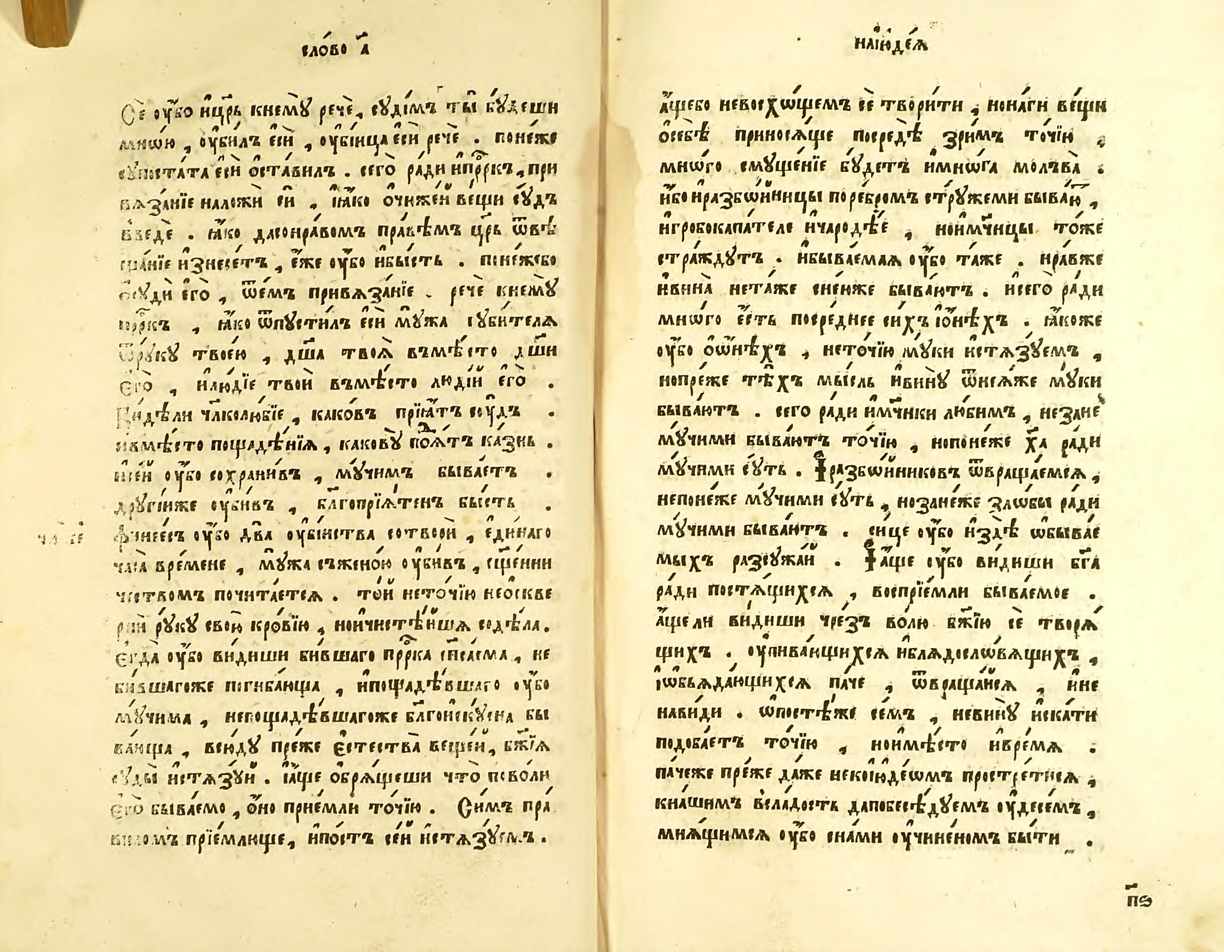 слово а҃
Сѐ оу҆́бо и҆цр҃ь кнемꙋ̀ речѐ, сꙋ́дїмъ ты̀ бꙋ́деши
мно́ю, оу҆би́лъ є҆сѝ, оу҆бі́йца є҆сѝ речѐ. поне́же
сꙋпоста́та є҆сѝ ѡ҆ста́вилъ. сего̀ ра́ди и҆прр҃къ, при
вѧза́нїе наложѝ є҆й, ꙗ҆́ко ѻ҆чиже́й ве́щи сꙋ́дъ
введѐ. ꙗ҆́ко дасонра́вомъ пра́вѣмъ цр҃ь ѿвѣ
ща́нїе и҆знесе́тъ, є҆́же оу҆́бо и҆бы́сть. поне́жебо
ѡ҆сꙋдѝ є҆го̀, ѿе́мъ привѧза́нїе. речѐ кнемꙋ̀
прр҃къ, ꙗ҆́ко ѿпꙋсти́лъ є҆сѝ мꙋ́жа гꙋби́телѧ
ѿрꙋкꙋ̀ твоє́ю, дш҃а̀ твоѧ̀ въмѣ́сто дш҃и
є҆го̀, и҆лю́дїе твоѝ въмѣ́сто люді́й є҆го̀.
Ви́дѣли чл҃колю́бїе, како́въ прїѧ́тъ сꙋ́дъ.
и҆вмѣ́сто пощаде́нїѧ, какову̀ поѧ́тъ ка́знь.
и҆се́й оу҆́бо сохрани́въ, мꙋ́чимъ быва́етъ.
дрꙋгі́йже оу҆би́въ, бл҃гопрїѧ́тенъ бы́сть.
фїнее́съ оу҆́бо два̀ оу҆бі́йства сотворѝ, є҆ди́наго
часа̀ вре́мене, мꙋ́жа съжено́ю оу҆би́въ, сщ҃е́нни
чествомъ почита́етсѧ. то́й нето́чїю неѡ҆скве
рнѝ рꙋ́кꙋ свою̀ кро́вїю, нои҆чистѣ́йшꙋ содѣ́ла.
Є҆гда̀ оу҆́бо ви́диши би́вшаго прр҃ка сп҃са́ема, не
би́вшагоже погиба́юща, и҆пощадѣ́вшаго оу҆́бо
мꙋ́чима, непощадѣ́вшагоже бл҃гоискꙋ́сна бы
ва́юща, всю́дꙋ пре́же є҆стества̀ веще́й, бж҃їѧ
сꙋды̀ и҆стѧзꙋ́й. І҆а҆́ще ѡ҆брѧ́щеши что̀ пово́ли
є҆го̀ быва́емо, ѻ҆но̀ прие́мли то́чїю. Си́мъ пра
виломъ прїе́млюще, и҆по́стъ се́й и҆стѧзꙋ́емъ.
наїю҆де́ѧ
а҆́щебо невосхѡ́щемъ сѐ твори́ти, нона́ги ве́щи
ѡ҆себѣ̀ принося́ще посредѣ̀ зри́мъ то́чїю,
мно́го смꙋще́нїе бꙋ́детъ и҆мнѡ́га молва̀.
и҆́бо и҆разбѡ́йницы поребро́мъ стрꙋже́ми быва́ю,
и҆гробокопа́теле и҆чародѣ́е, нои҆мч҃ицы то́же
стра́ждꙋтъ. и҆быва́емаѧ оу҆́бо та́же. нра́вже
и҆вина̀ нета́же сненже быва́ютъ. и҆сего̀ ра́ди
мно́го є҆́сть посре́днее си́хъ і҆ѻ҆нѣ́хъ. ꙗ҆́коже
оу҆́бо ѡ҆ѻнѣ́хъ, нето́чїю мꙋ́ки и҆стѧзꙋ́емъ,
нопре́же тѣ́хъ мы́сль и҆винꙋ̀ ѿнеѧ́же мꙋ́ки
быва́ютъ. сего̀ ра́ди и҆мч҃ики лю́бимъ, незане́
мꙋ́чими быва́ютъ то́чїю, нопоне́же ха҃ ра́ди
мꙋ́чими сꙋ́ть. І҆разбѡ́йниковъ ѿвраща́емсѧ,
непоне́же мꙋ́чими сꙋ́ть, нозане́же зло́бы ра́ди
мꙋ́чими быва́ютъ. си́це оу҆́бо и҆здѣ̀ ѡ҆быва́е
мыхъ разсꙋжда́й. І҆а҆́ще оу҆́бо ви́диши бг҃а
ра́ди постѧ́щихсѧ, воспрїе́мли быва́емое.
а҆́щели ви́диши чрезъ во́лю бж҃їю сѐ творѧ́
щихъ. оу҆пива́ющихсѧ и҆блѧдосло́вѧщихъ,
і҆ѡбъѧда́ющихсѧ па́че, ѿвраща́йсѧ, и҆не
нави́ди. ѡ҆по́стѣже се́мъ, невинꙋ̀ и҆ска́ти
подоба́етъ то́чїю, нои҆мѣ́сто и҆вре́мѧ.
па́чеже пре́же да́же некої҆юде́ѡмъ простре́тисѧ,
кна́шимъ всла́дость дапобесѣ́дꙋемъ оу҆десе́мъ,
мнѧ́щимсѧ оу҆́бо сна́ми оу҆чине́номъ бы́ти.
п҃ѳ